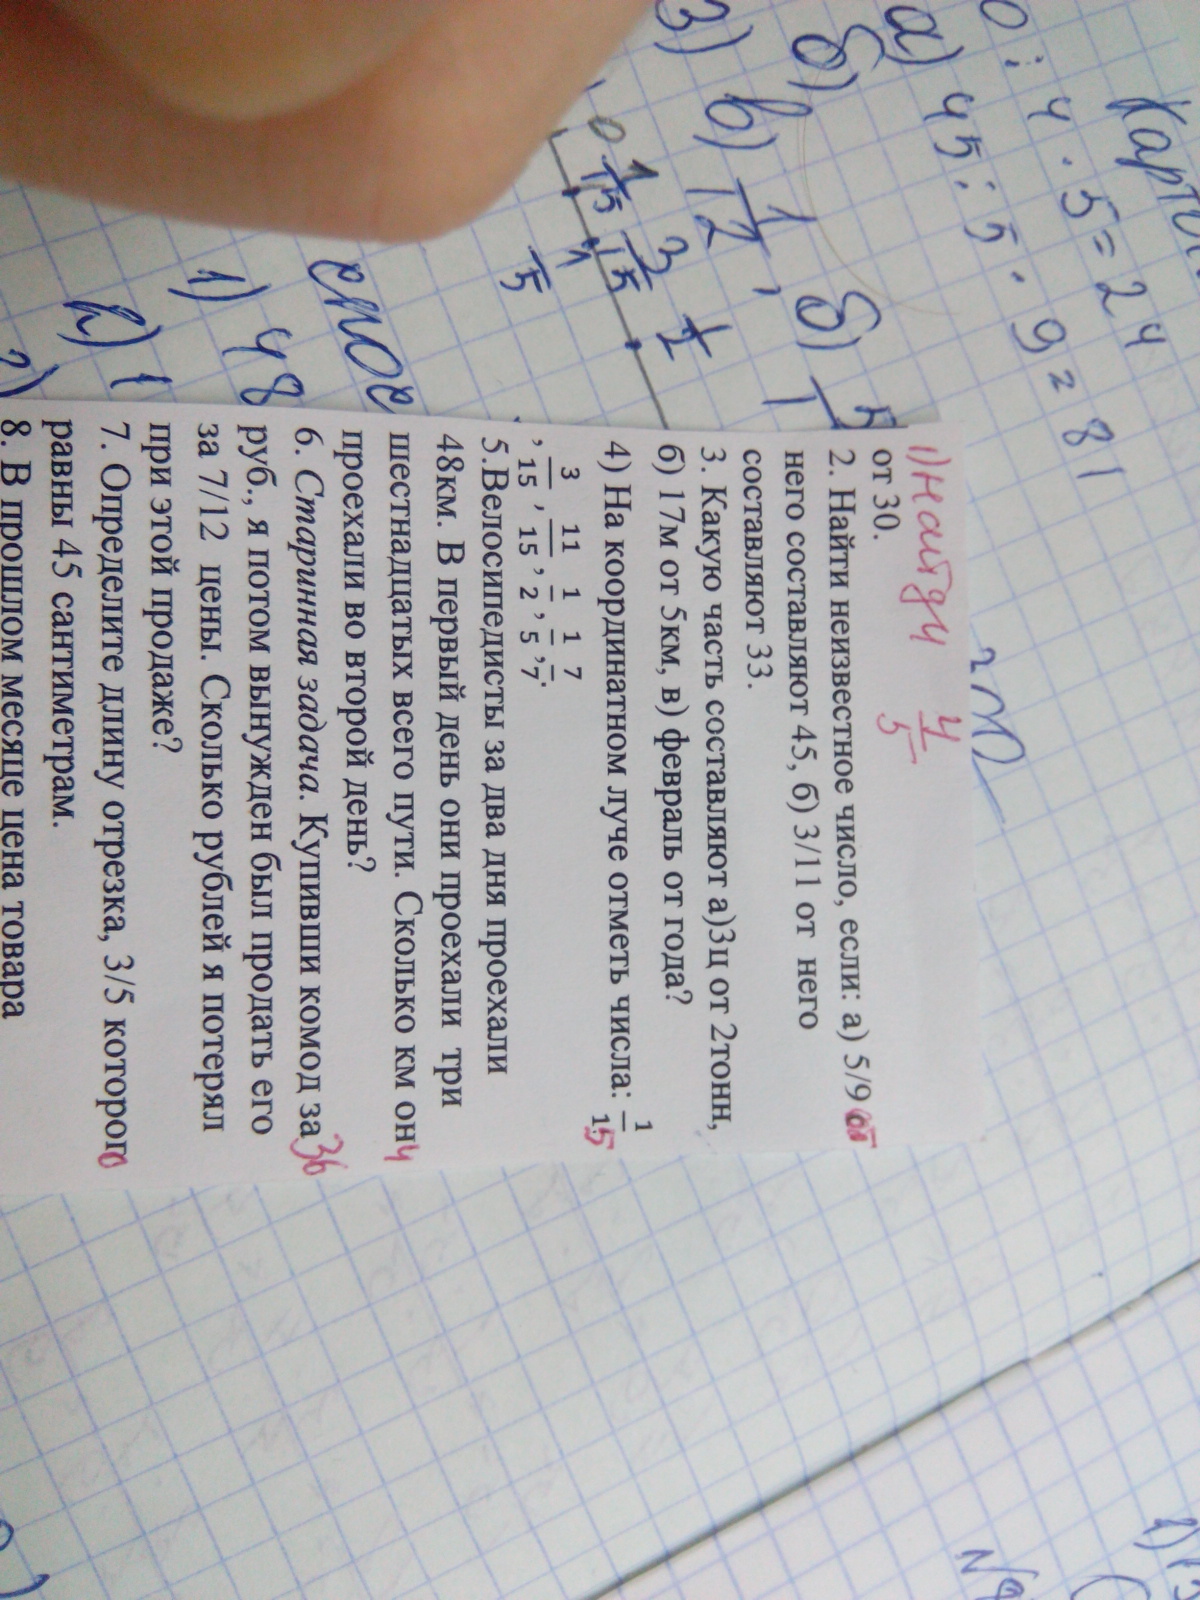 2 m
1) найди 4/5
от 30.
2. Найти неизвестное число, если: а) 5/9 от
него составляют 45, б) 3/11 от него
составляют 33.
3. Какую часть составляют а)3ц от 2тонн,
б) 17м от 5км, в) февраль от года?
4) На координатном луче отметь числа: 1/15
, 3/15, 11/15, 1/2, 1/5, 7/7.
5.Велосипедисты за два дня проехали
48км. В первый день они проехали три
шестнадцатых всего пути. Сколько км они
проехали во второй день?
6. Старинная задача. Купивши комод за 36
руб., я потом вынужден был продать его
за 7/12 цены. Сколько рублей я потерял
при этой продаже?
7. Определите длину отрезка, 3/5 которого
равны 45 сантиметрам.
8. В прошлом месяце цена товара
0 : 4 · 5 = 24
а) 45 : 5 · 9 = 81
б)
3) в) 1/12, б)
0 1/15 3/15 1/2
1/5
1) 48
2)